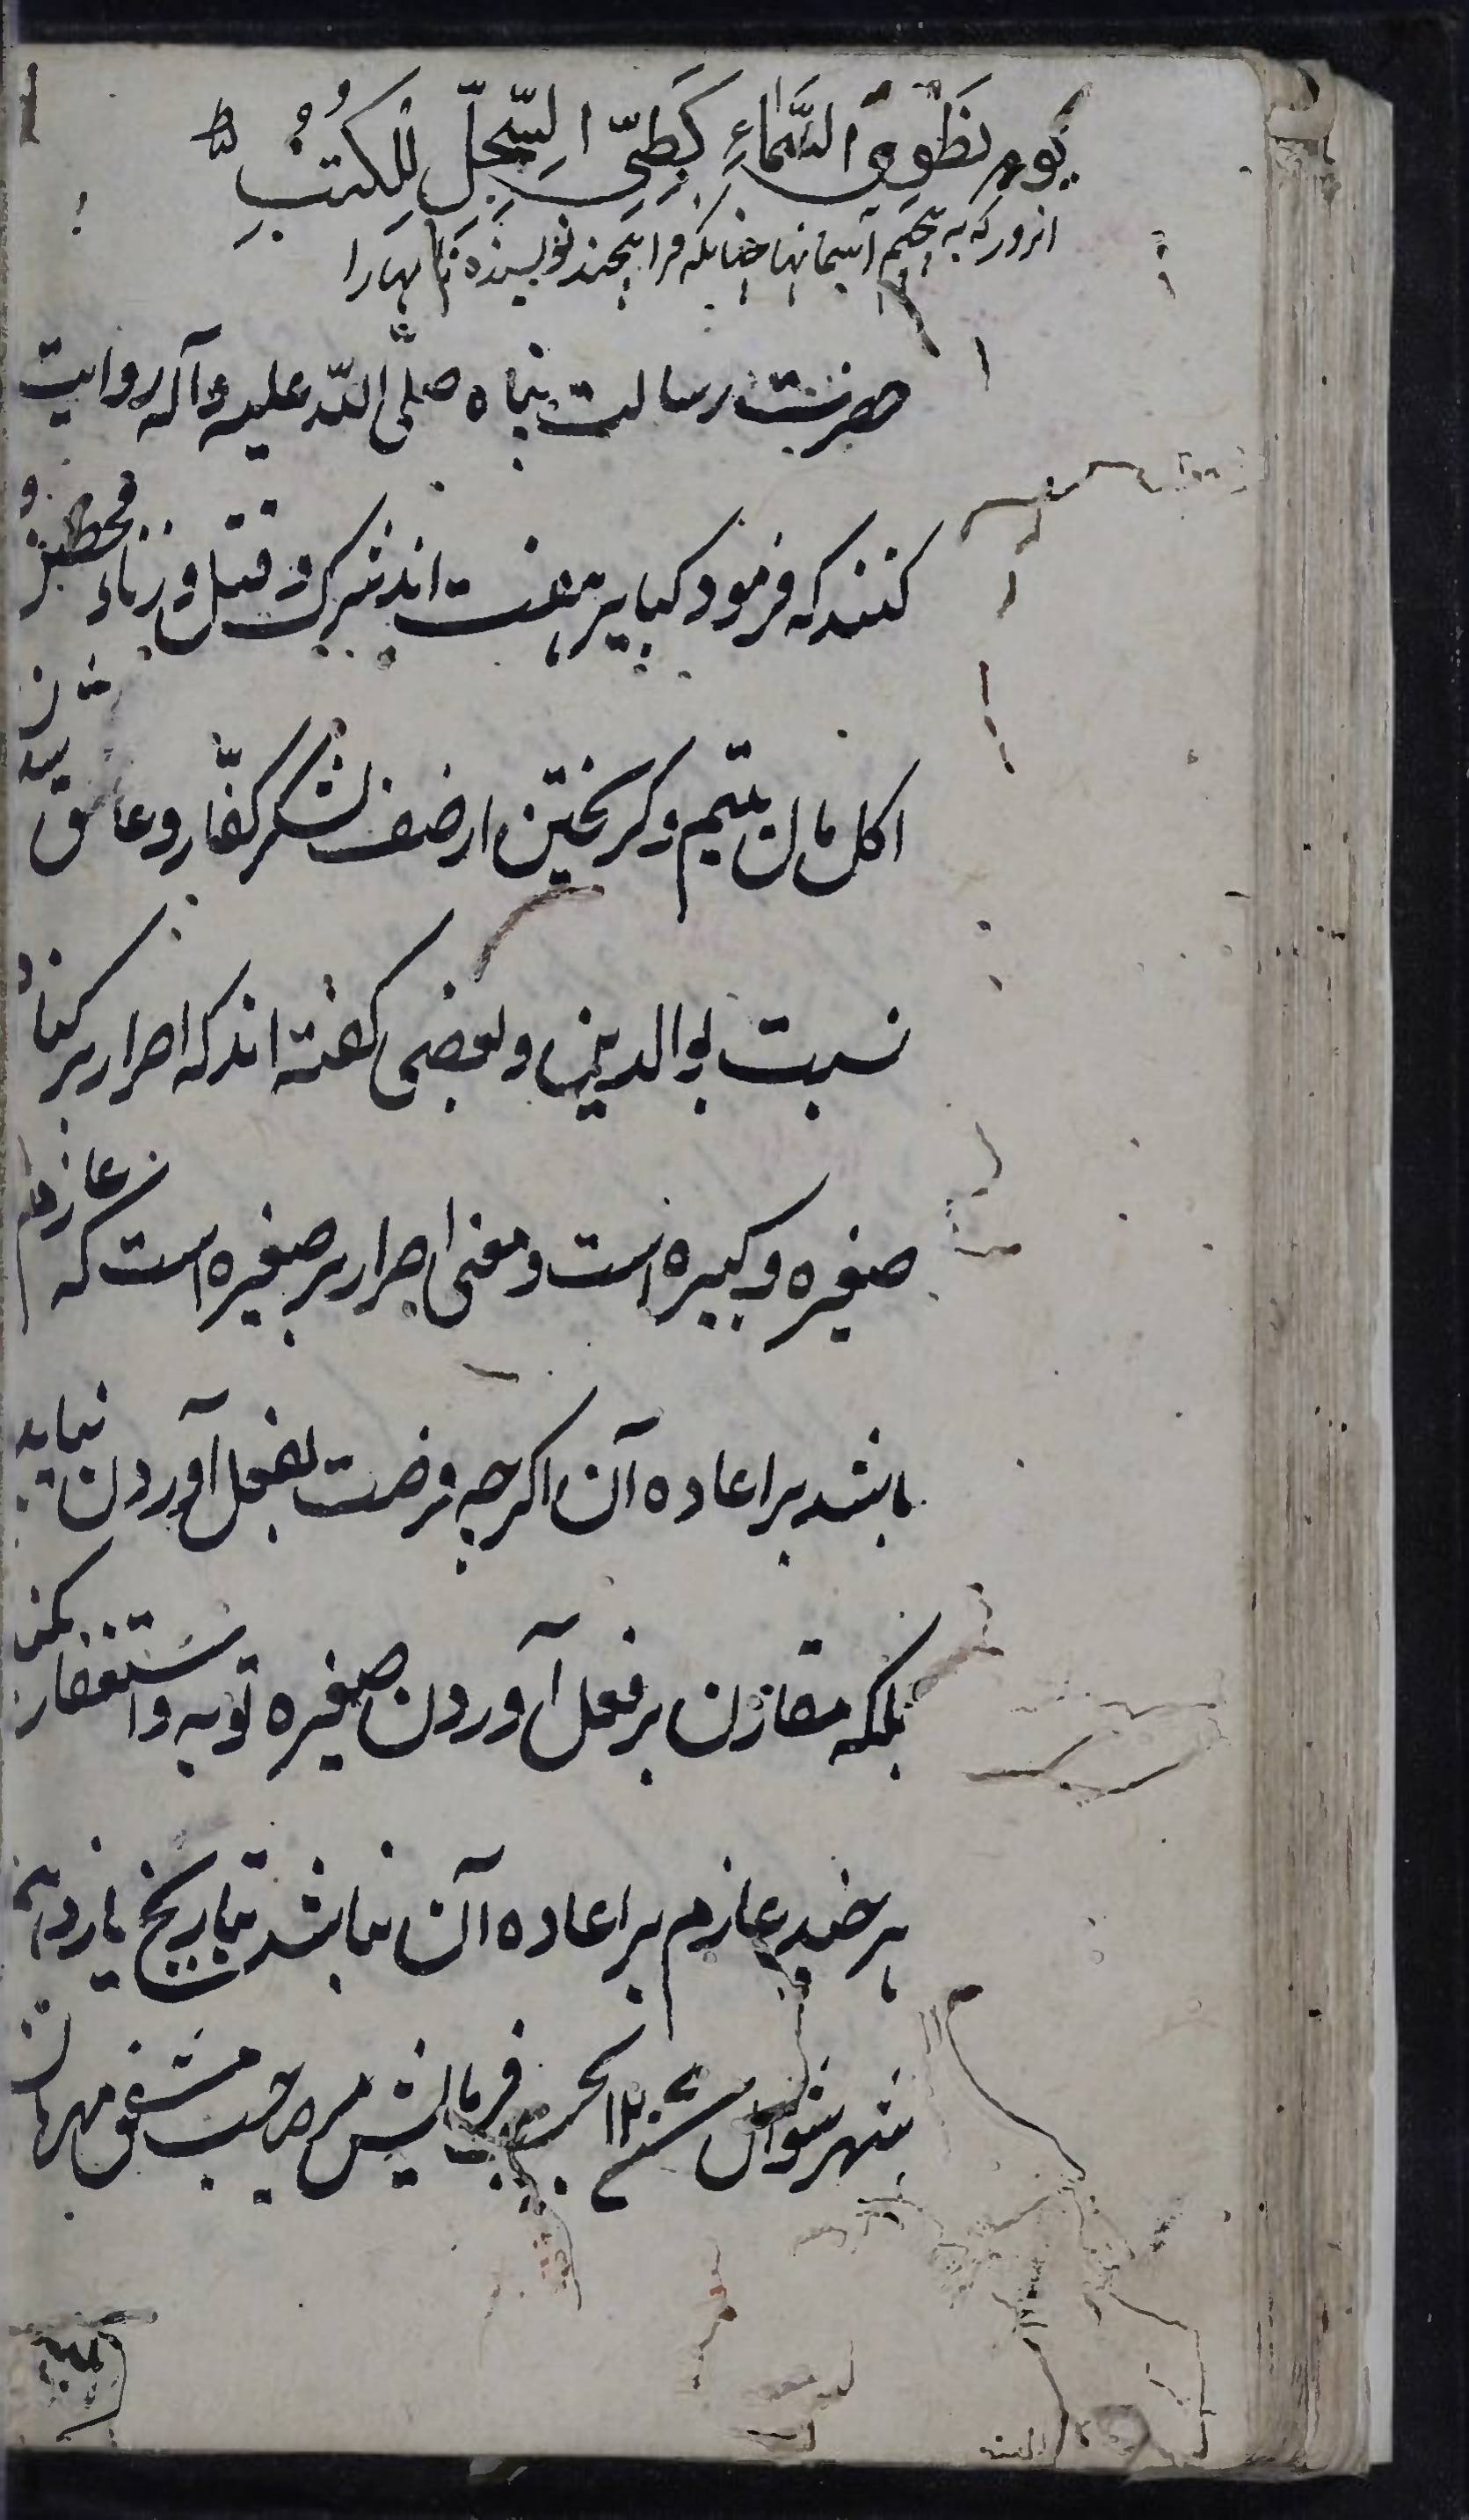 یَوْمَ نَطْوِي السَّمَاءِ كَطَيِّ السِّجِلِّ لِلْكُتُبِ ط
انروز که به پیچیم آسمانها چنانکه فرا پیچند نویسنده نامهارا
حضرت رسالت پناه صلّی اللّه علیه وآله روایت
کنند که فرمود کبایر هفت اند شرک و قتل و زناء محصنه و
اکل مال یتیم و کریختن ارصف لشکر کفّار و عاق شدن
نسبت بوالدین و بعضی کفته اند که اصرار بر کناه
صغیره و کبیره است و معنی اصرار بر صغیره است که عازم
باشد براعاده آن اکرچه فرصت بفعل آوردن نیابد
بلکه مقارن برفعل آوردن صغیره توبه واستغفار نکند
هرچند عازم براعاده آن نباشد بتاریخ یازدهم
شهر شوال سنه بحسب فرمایش صاحب مشفق مهربان